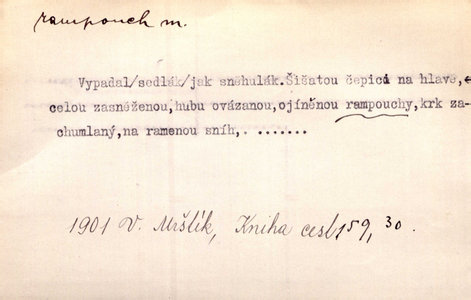 rampouch m.
Vypadal/sedlák/jak sněhulák.Šišatou čepici na hlavě,
celou zasněženou,hubu ovázanou,ojíněnou rampouchy,krk za-
chumlaný,na ramenou sníh,. .......
1901 V. Mrštík, Kniha cest 159, 30.